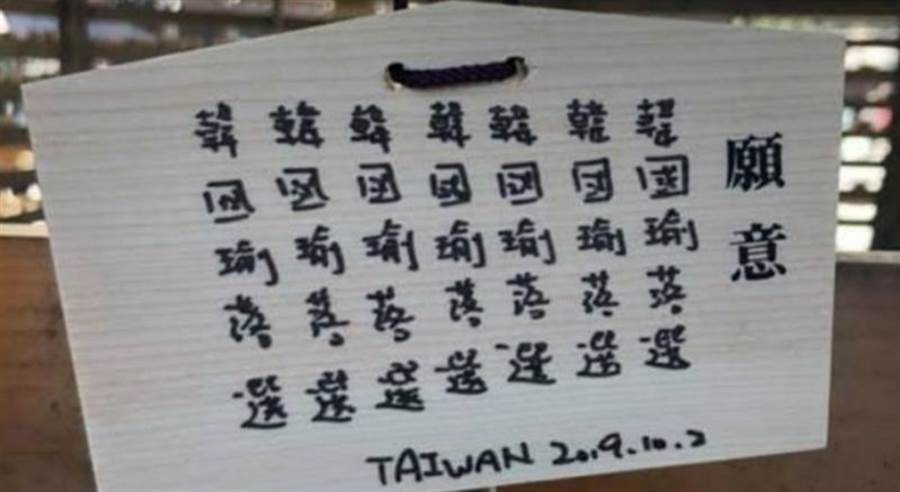 願意
韓國瑜落選
韓國瑜落選
韓國瑜落選
韓國瑜落選
韓國瑜落選
韓國瑜落選
韓國瑜落選
TAIWAN 2019.10.2